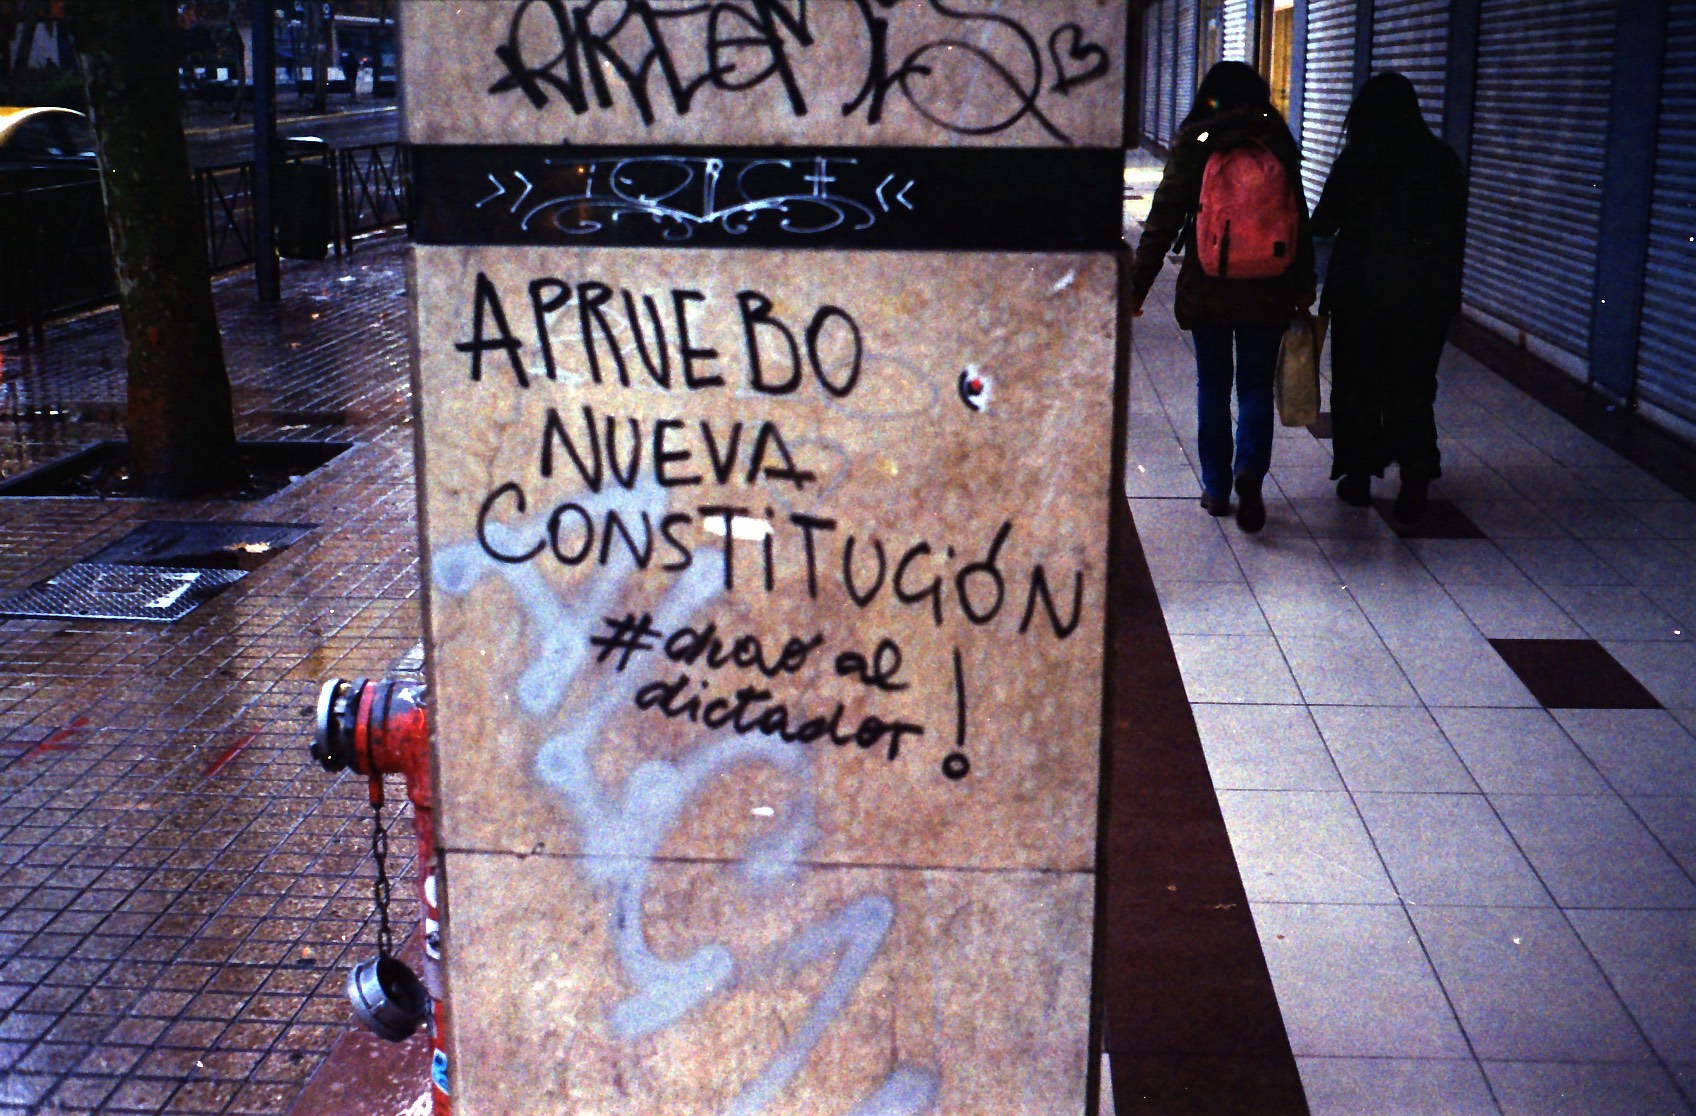 ARTEMIS
APRUEBO
NUEVA
CONSTITUCIÓN
#chao al
dictador!